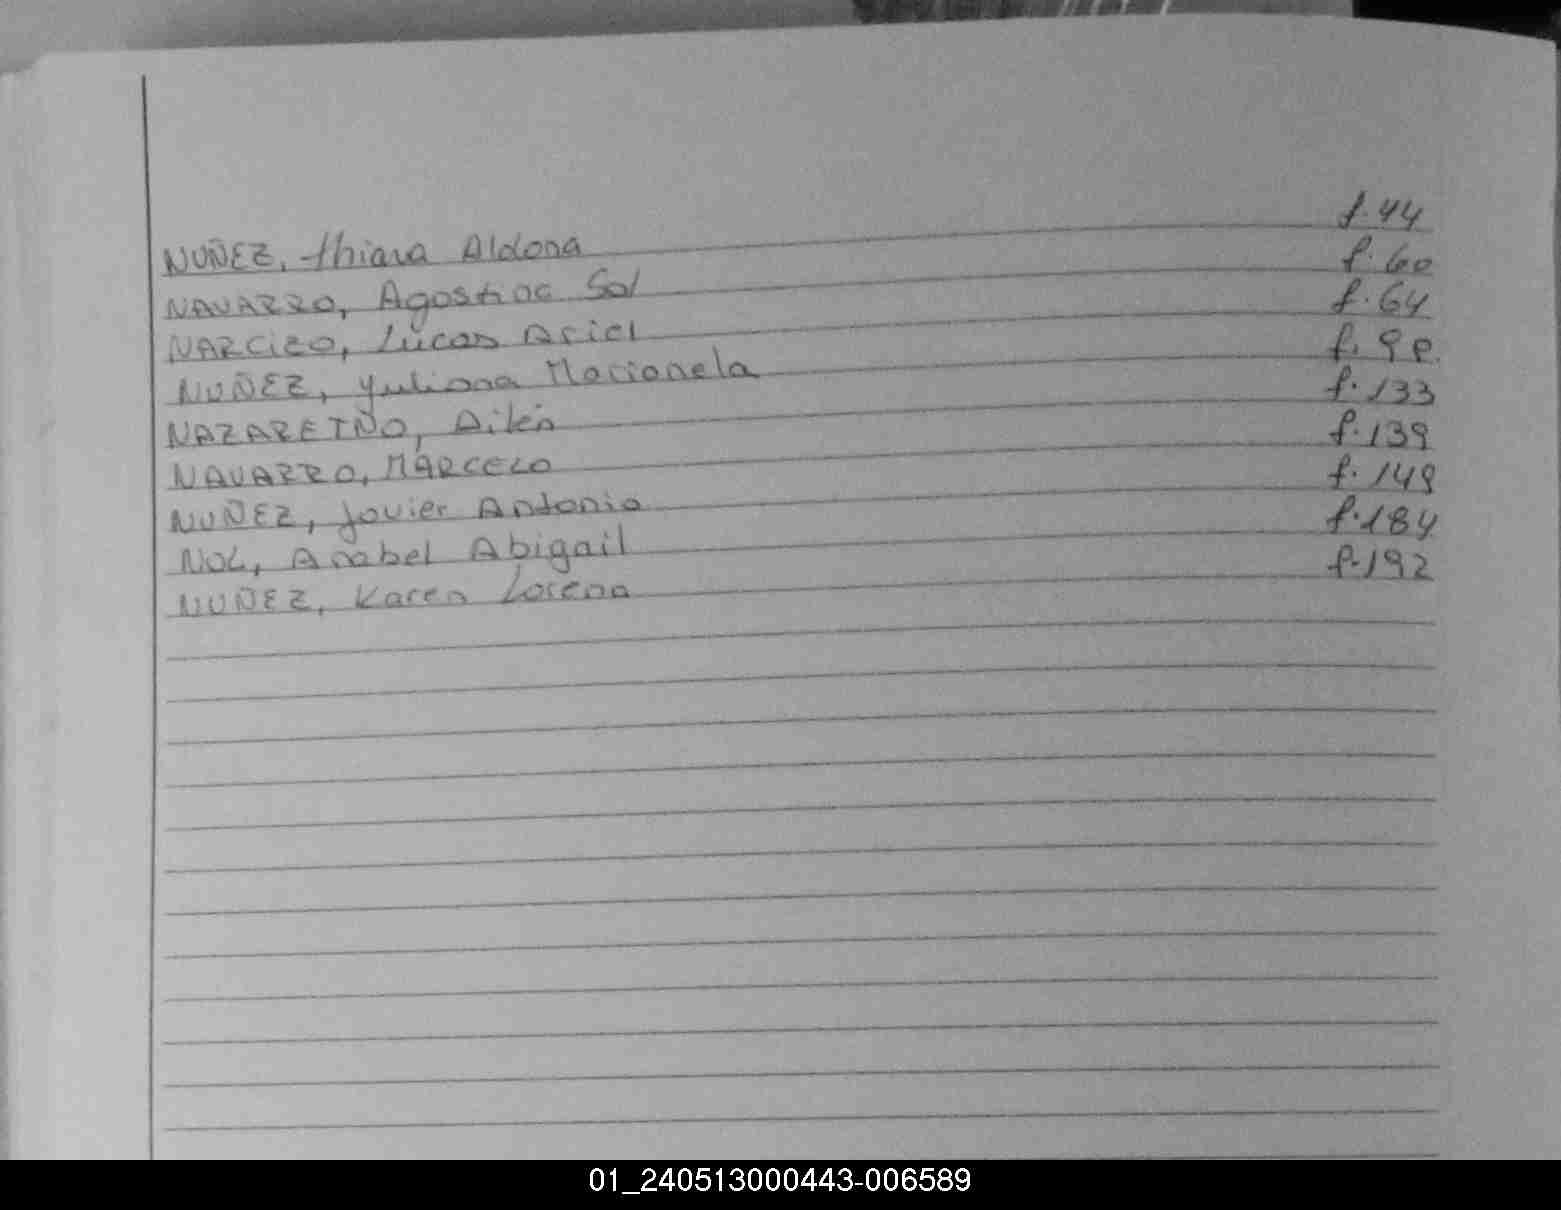 NUÑEZ, thiara Aldana f.44
NAVARRO, Agostina Sol f.60
NARCIZO, Lucas Ariel f.64
NUÑEZ, Yuliana Marianela f.98
NAZARETÑO, Ailén f.133
NAVARRO, MARCELO f.139
NUÑEZ, Javier Antonio f.149
NOL, Anabel Abigail f.184
NUÑEZ, Karen Lorena f.192
01_240513000443-006589